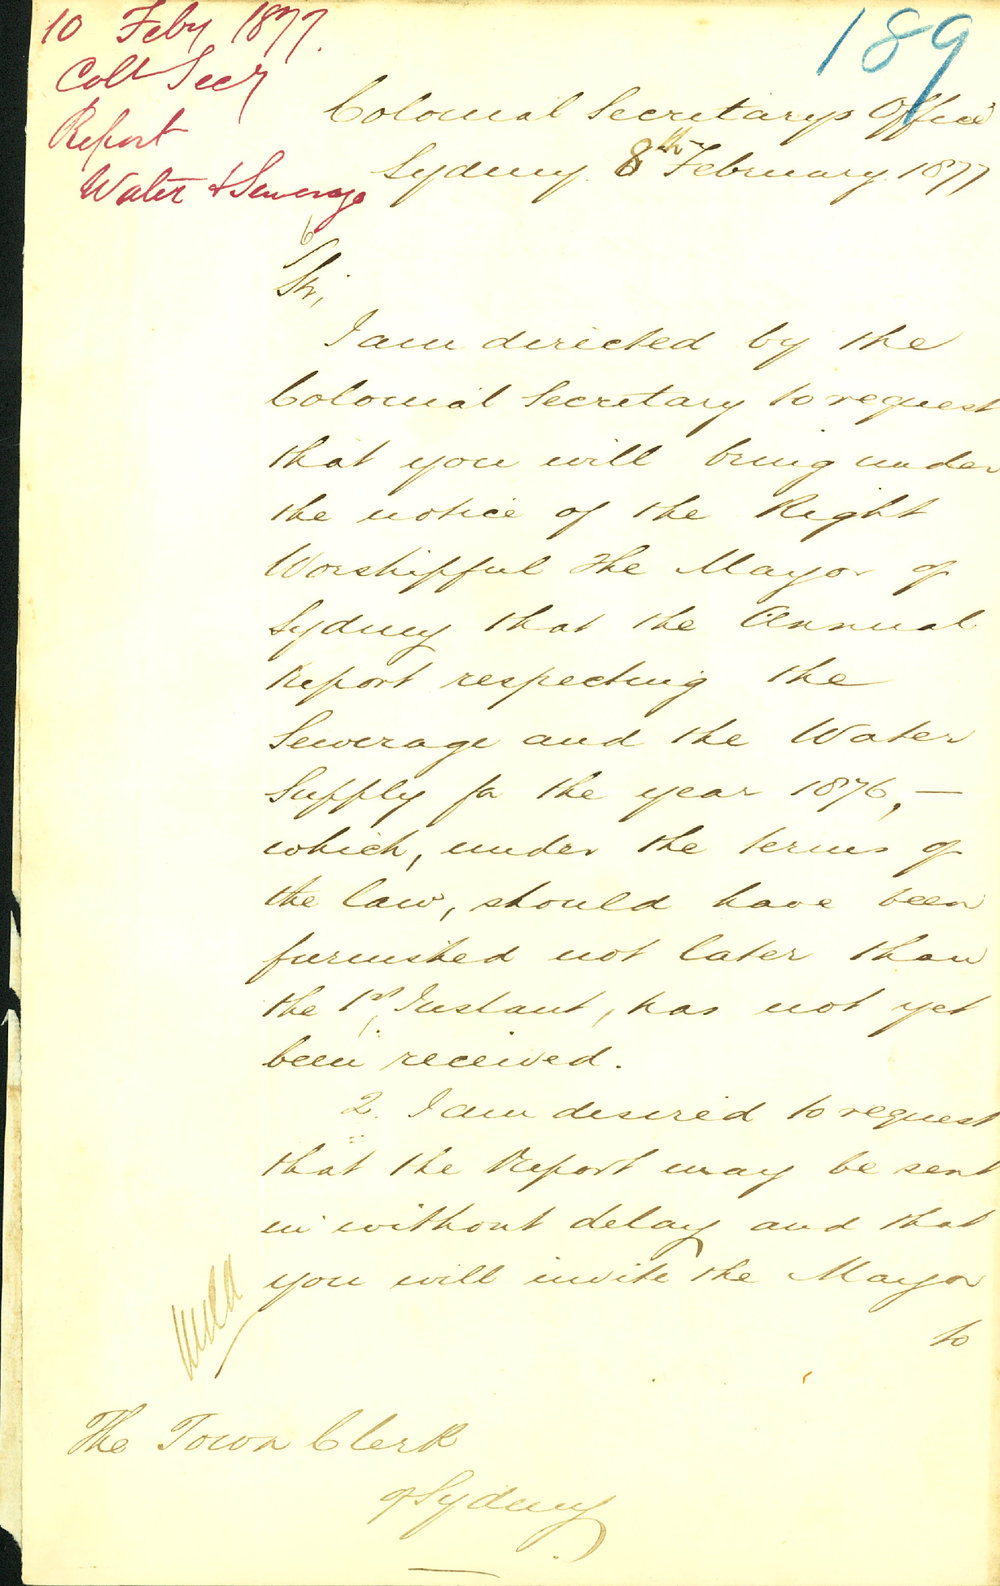 10 Feby 1877.
Coll Secy
Report
Water & Sewerage
189
Colonial Secretarys Office
Sydney 8th February 1877
Sir,
I am directed by the
Colonial Secretary to request
that you will bring under
the notice of the Right
Worshipful the Mayor of
Sydney that the Annual
Report respecting the
Sewerage and the Water
Supply for the year 1876, —
which, under the terms of
the law, should have been
furnished not later than
the 1st Instant, has not yet
been received.
2. I am desired to request
that the Report may be sent
in without delay and that
you will invite the Mayor
to
The Town Clerk
of Sydney